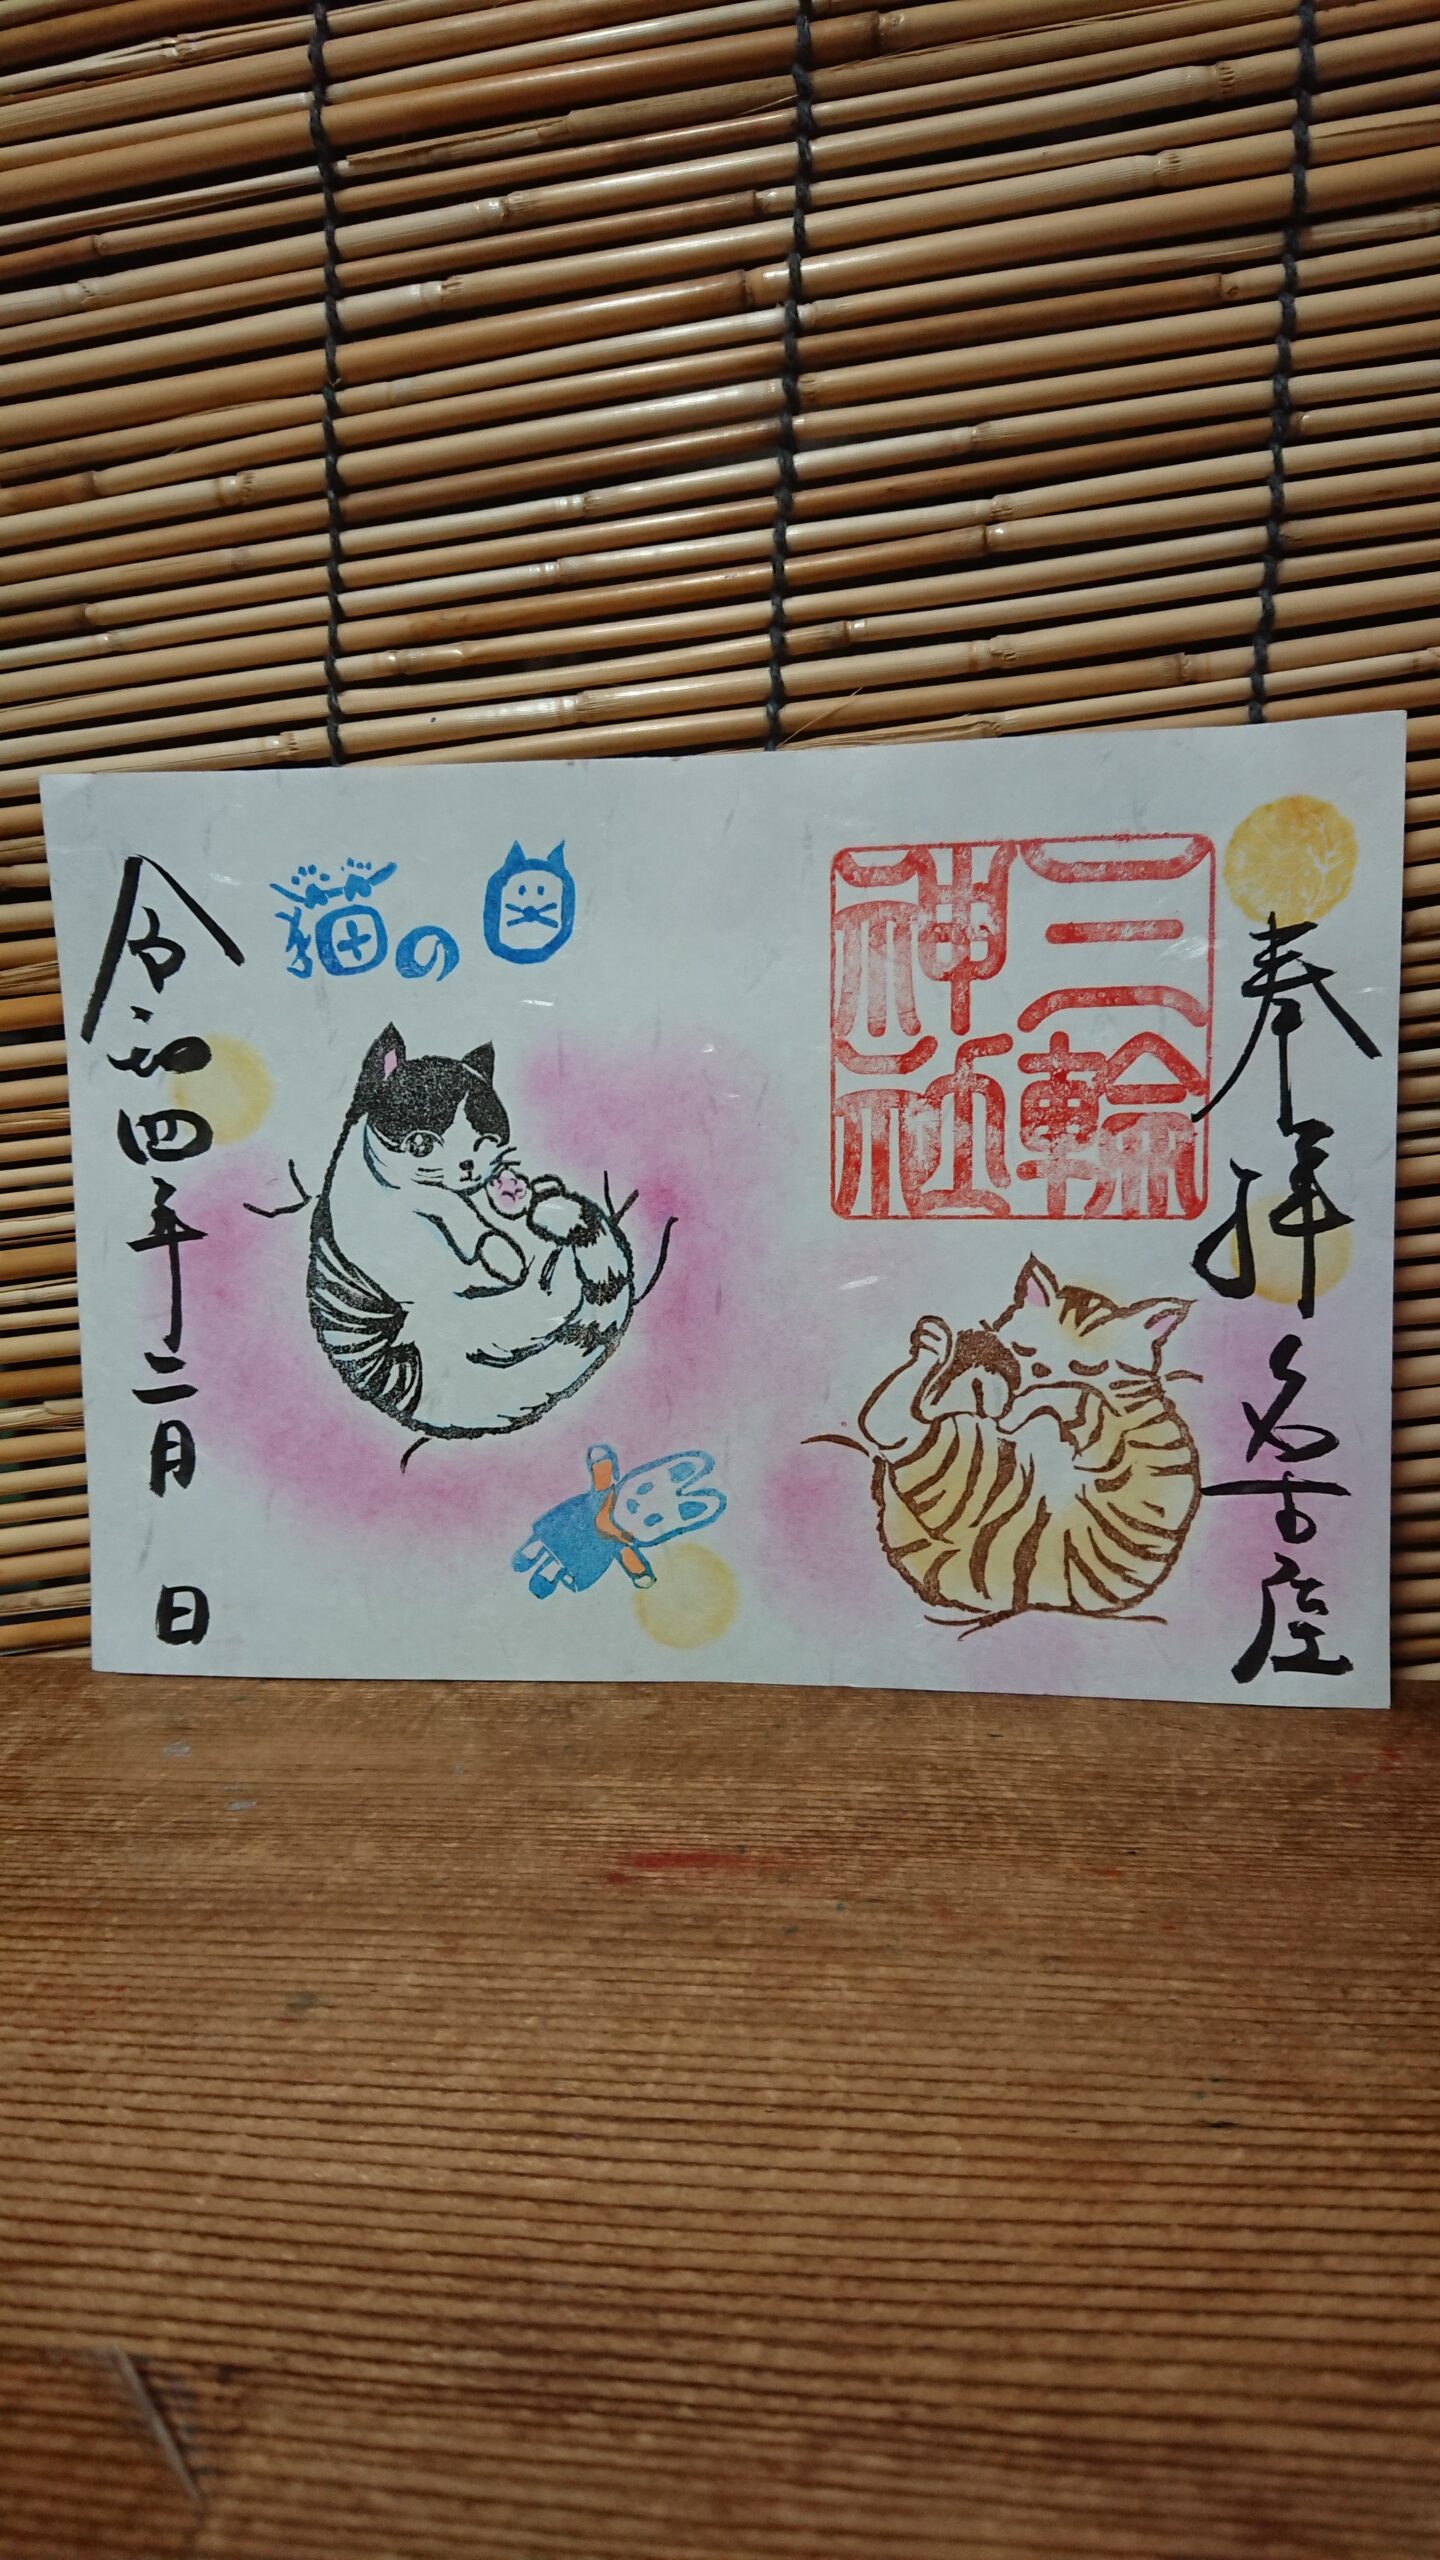 奉拝 名古屋
三輪
神社
猫の日
令和四年二月 日